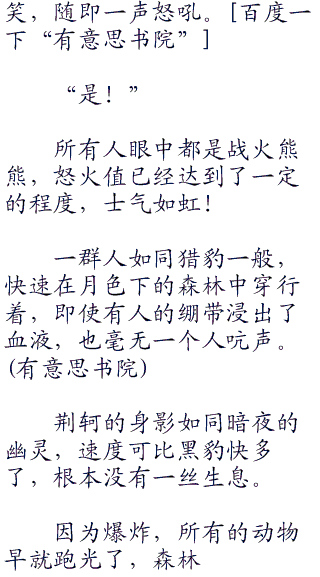 笑，随即一声怒吼。[百度一
下“有意思书院”]
“是！”
所有人眼中都是战火熊
熊，怒火值已经达到了一定
的程度，士气如虹！
一群人如同猎豹一般，
快速在月色下的森林中穿行
着，即使有人的绷带浸出了
血液，也毫无一个人吭声。
(有意思书院)
荆轲的身影如同暗夜的
幽灵，速度可比黑豹快多
了，根本没有一丝生息。
因为爆炸，所有的动物
早就跑光了，森林